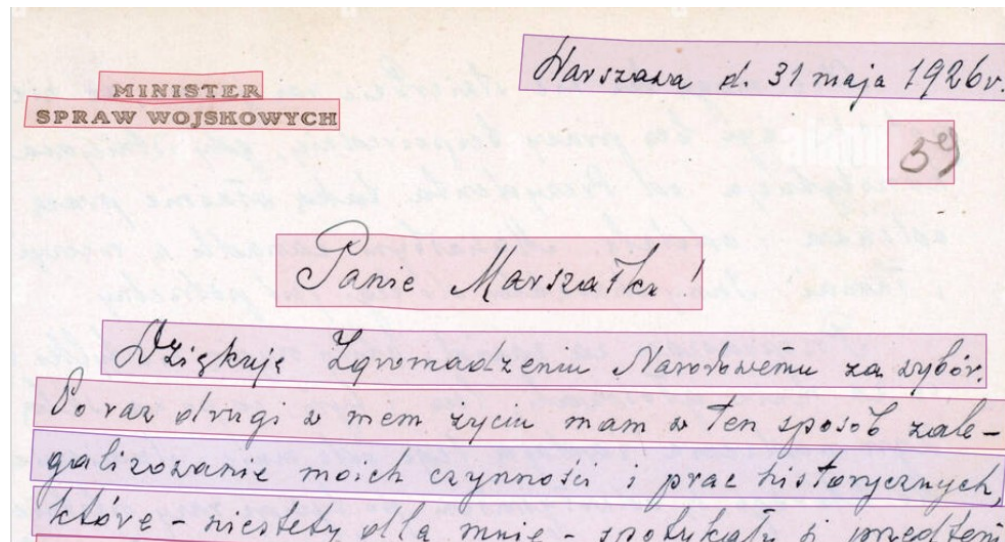 MINISTER
SPRAW WOJSKOWYCH
Warszawa d. 31 maja 1926r.
59
Panie Marszałku!
Dziękuję Zgromadzeniu Narodowemu za wybór.
Po raz drugi w mem życiu mam w ten sposób zale-
galizowanie moich czynności i prac historycznych,
które - niestety dla mnie - spotykały się przedtem